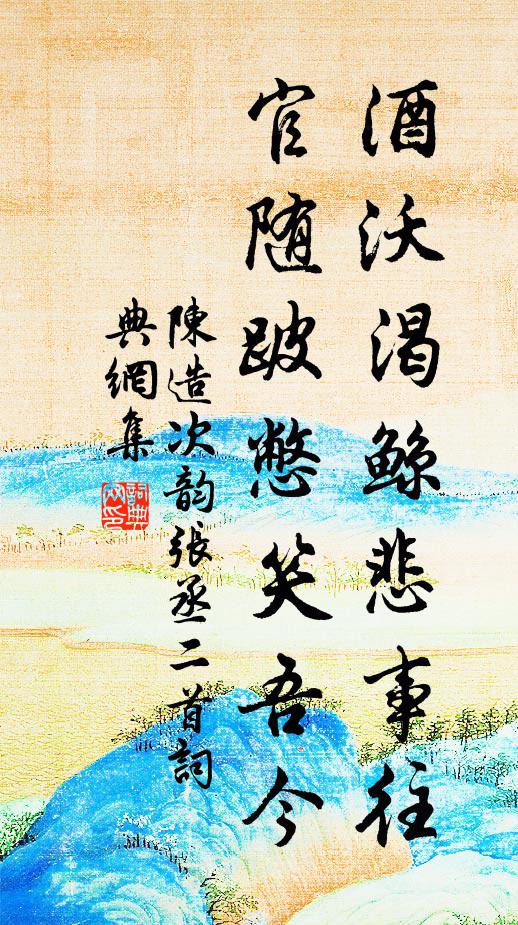 酒沃渴鲸悲事往
官随跛憋笑吾今
陳造次韵張丞二首詞
典網集
詞典
网印